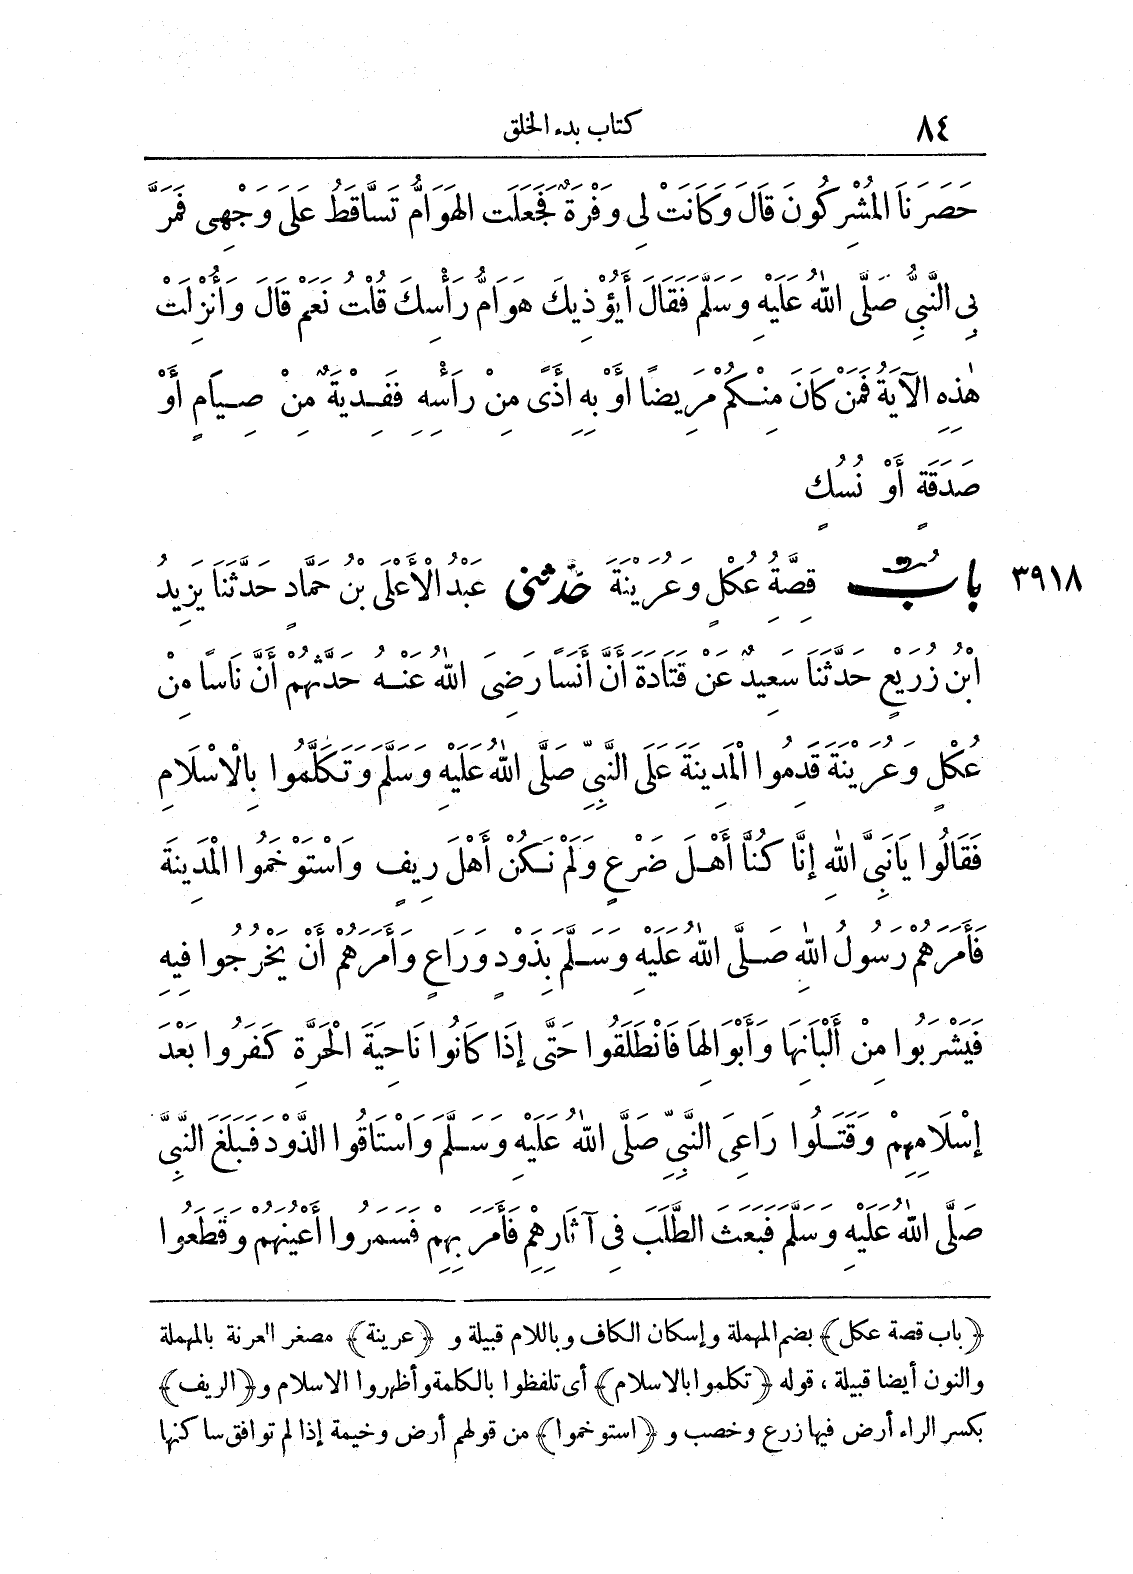 ٨٤ كتاب بدء الخلق
حَصَرَنَا الْمُشْرِكُونَ قَالَ وَكَانَتْ لِي وَفْرَةٌ فَجَعَلَتِ الْهَوَامُّ تَسَّاقَطُ عَلَى وَجْهِى فَمَرَّ
بِى النَّبِىُّ صَلَّى اللهُ عَلَيْهِ وَسَلَّمَ فَقَالَ أَيُؤْذِيكَ هَوَامُّ رَأْسِكَ قُلْتُ نَعَمْ قَالَ وَأُنْزِلَتْ
هٰذِهِ الآيَةُ فَمَنْ كَانَ مِنْكُمْ مَرِيضًا أَوْ بِهِ أَذًى مِنْ رَأْسِهِ فَفِدْيَةٌ مِنْ صِيَامٍ أَوْ
صَدَقَةٍ أَوْ نُسُكٍ
٣٩١٨ بابُ قِصَّةِ عُكْلٍ وَعُرَيْنَةَ حَدَّثَنِى عَبْدُ الْأَعْلَى بْنُ حَمَّادٍ حَدَّثَنَا يَزِيدُ
ابْنُ زُرَيْعٍ حَدَّثَنَا سَعِيدٌ عَنْ قَتَادَةَ أَنَّ أَنَسًا رَضِىَ اللهُ عَنْهُ حَدَّثَهُمْ أَنَّ نَاسًا مِنْ
عُكْلٍ وَعُرَيْنَةَ قَدِمُوا الْمَدِينَةَ عَلَى النَّبِىِّ صَلَّى اللهُ عَلَيْهِ وَسَلَّمَ وَتَكَلَّمُوا بِالْاِسْلَامِ
فَقَالُوا يَا نَبِىَّ اللهِ إِنَّا كُنَّا أَهْلَ ضَرْعٍ وَلَمْ نَكُنْ أَهْلَ رِيفٍ وَاسْتَوْخَمُوا الْمَدِينَةَ
فَأَمَرَهُمْ رَسُولُ اللهِ صَلَّى اللهُ عَلَيْهِ وَسَلَّمَ بِذَوْدٍ وَرَاعٍ وَأَمَرَهُمْ أَنْ يَخْرُجُوا فِيهِ
فَيَشْرَبُوا مِنْ أَلْبَانِهَا وَأَبْوَالِهَا فَانْطَلَقُوا حَتَّى إِذَا كَانُوا نَاحِيَةَ الْحَرَّةِ كَفَرُوا بَعْدَ
إِسْلَامِهِمْ وَقَتَلُوا رَاعِىَ النَّبِىِّ صَلَّى اللهُ عَلَيْهِ وَسَلَّمَ وَاسْتَاقُوا الذَّوْدَ فَبَلَغَ النَّبِىَّ
صَلَّى اللهُ عَلَيْهِ وَسَلَّمَ فَبَعَثَ الطَّلَبَ فِى آثَارِهِمْ فَأَمَرَ بِهِمْ فَسَمَرُوا أَعْيُنَهُمْ وَقَطَعُوا
﴿باب قصة عكل﴾ بضم المهملة وإسكان الكاف وباللام قبيلة و ﴿عرينة﴾ مصغر العرنة بالمهملة
والنون أيضا قبيلة ، قوله ﴿تكلموا بالاسلام﴾ أى تلفظوا بالكلمة وأظهروا الاسلام و﴿الريف﴾
بكسر الراء أرض فيها زرع وخصب و ﴿استوخموا﴾ من قولهم أرض وخيمة إذا لم توافق ساكنها